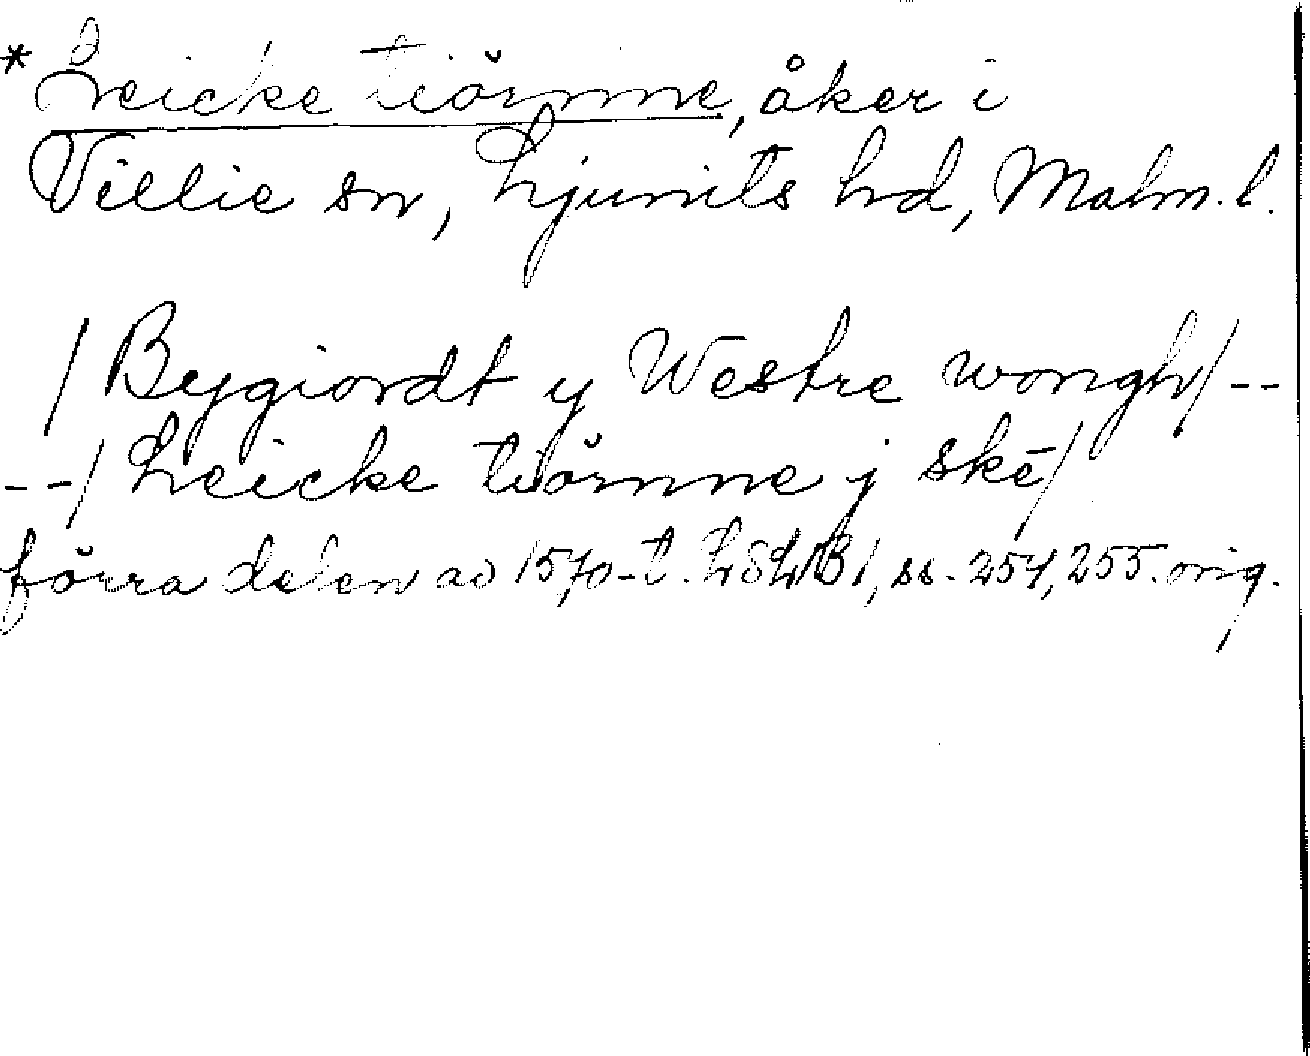 *Leicke tiörnne, åker i
Villie sn, Ljunits hd, Malm. l.
/Bygiordt y Westre wongh/--
--/Leicke tiörnne j ske/
förra delen av 1570-t. LSLB1, ss. 254, 255. orig.